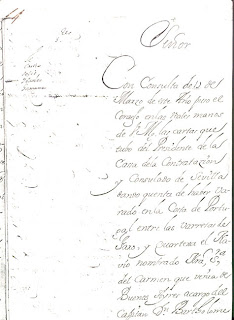 Señor
Con Consulta de 12 de
Marzo de este Año puso el
Consejo en las Reales manos
de V. M. las cartas que
tubo del Presidente de la
Casa de la Contratación
y Consulado de Sevilla
dando quenta de haver va-
rado en la Costa de Portu-
gal entre las varretas de
Faro, y Quarteira el Na-
vio nombrado Nra. Sra.
del Carmen que venia de
Buenos Ayres a cargo del
Capitan Dn. Bartholome